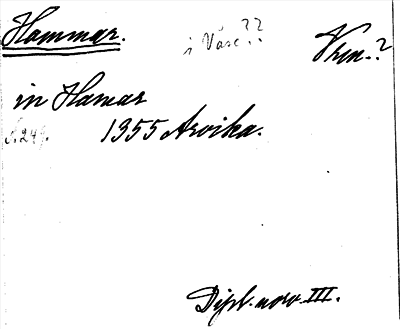 Hammar. i Väse?? Vrm.?
in Hamar
s. 249. 1355 Arvika.
Dipl. norv. III.